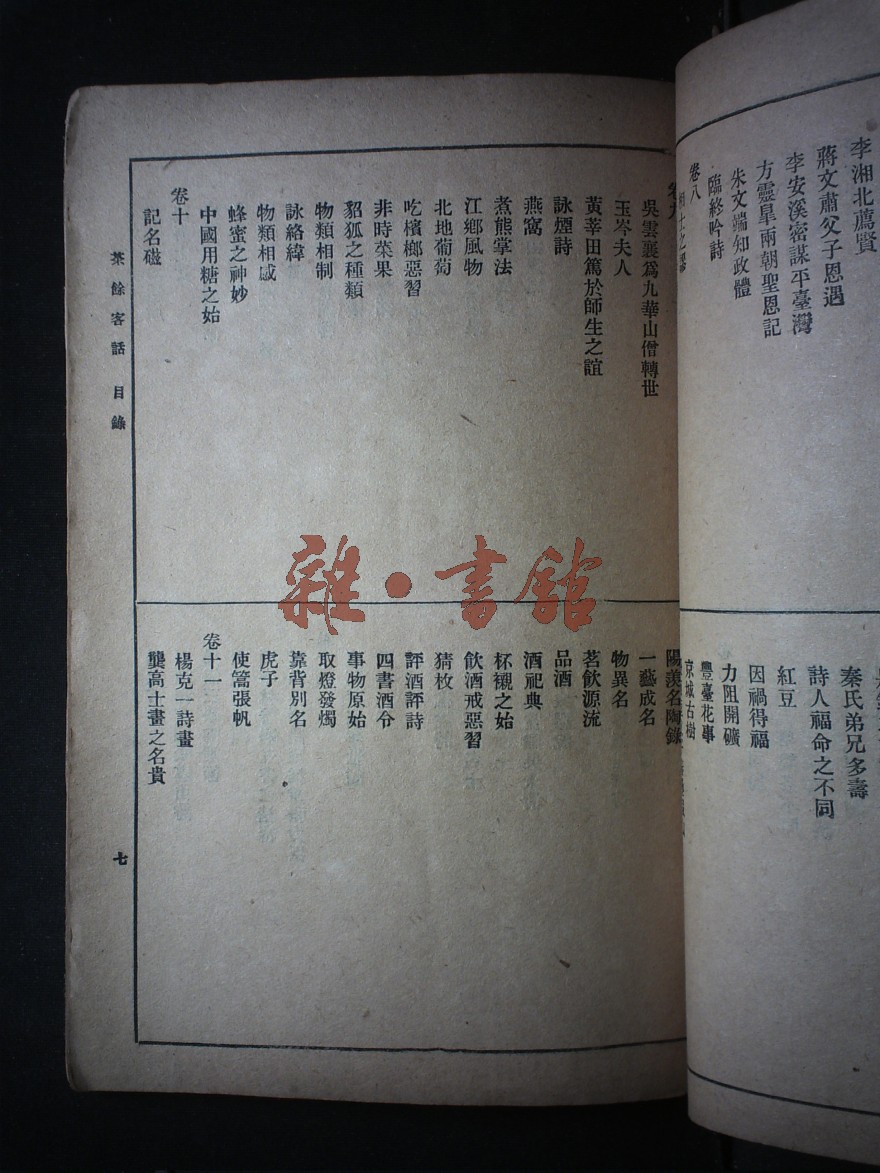 李湘北薦賢
蔣文肅父子恩遇
李安溪密謀平臺灣
方靈臯兩朝聖恩記
朱文端知政體
臨終吟詩
卷八
秦氏弟兄多壽
詩人福命之不同
紅豆
因禍得福
力阻開礦
豐臺花事
京城古樹
吳雲襄爲九華山僧轉世
玉岑夫人
黃莘田篤於師生之誼
詠煙詩
燕窩
煮熊掌法
江鄉風物
北地葡萄
吃檳榔惡習
非時菜果
貂狐之種類
物類相制
詠絡緯
物類相感
蜂蜜之神妙
中國用糖之始
卷十
記名磁
陽羨名陶錄
一藝成名
物異名
茗飲源流
品酒
酒祀典
杯襯之始
飲酒戒惡習
猜枚
評酒評詩
四書酒令
事物原始
取燈發燭
靠背別名
虎子
使篙張帆
卷十一
楊克一詩畫
龔高士畫之名貴
茶餘客話 目錄
七
雜·書館